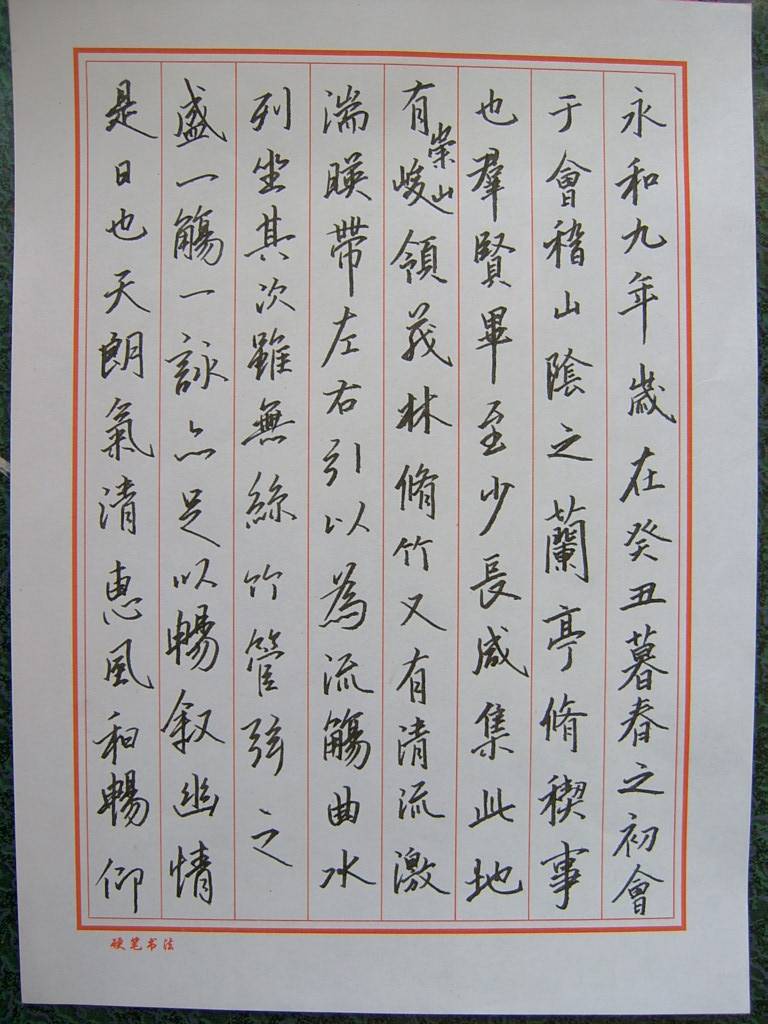 永和九年歲在癸丑暮春之初會
于會稽山陰之蘭亭脩稧事
也羣賢畢至少長咸集此地
有崇山峻領茂林脩竹又有清流激
湍暎帶左右引以為流觴曲水
列坐其次雖無絲竹管弦之
盛一觴一詠亦足以暢叙幽情
是日也天朗氣清惠風和暢仰
硬笔书法